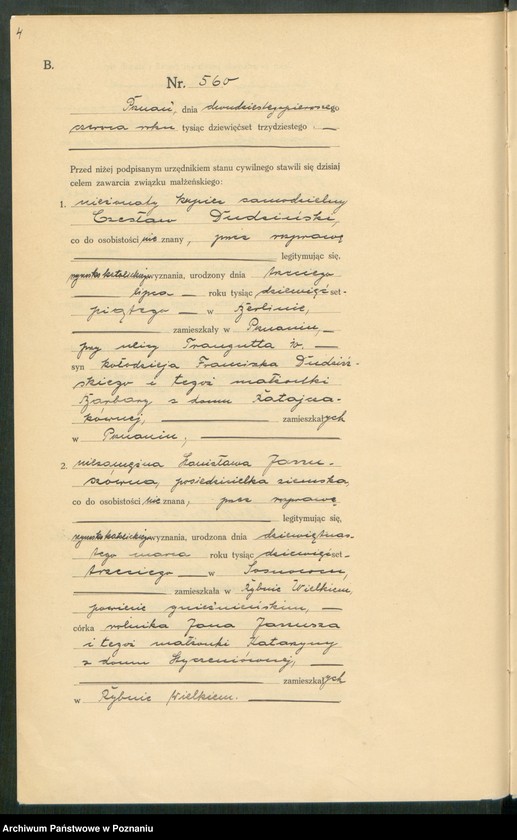 4
B.
Nr. 560
Poznań, dnia dwudziestegopierwszego
czerwca roku tysiąc dziewięćset trzydziestego —
Przed niżej podpisanym urzędnikiem stanu cywilnego stawili się dzisiaj
celem zawarcia związku małżeńskiego:
1. nieżonaty kupiec samodzielny
Czesław Dudziński,
co do osobistości nie znany, przez rozprawę
legitymując się,
rzymskokatolickiego wyznania, urodzony dnia trzeciego
— lipca — roku tysiąc dziewięćset-
piątego — w Berlinie,
zamieszkały w Poznaniu, —
przy ulicy Traugutta —
syn kołodzieja Franciszka Dudziń-
skiego i tegoż małżonki
Barbary z domu
zamieszkałych
w Poznaniu,
2. niezamężna Stanisława Janu-
szówna, posiedzicielka ziemska,
co do osobistości nie znana, przez rozprawę
legitymując się,
rzymskokatolickiego wyznania, urodzona dnia dziewiętnas-
tego marca roku tysiąc dziewięćset-
trzeciego — w Sosnowcu,
zamieszkała w Rybnie Wielkiem,
powiecie gnieźnieńskim, —
córka rolnika Jana Janusza
i tegoż małżonki Katarzyny
z domu
zamieszkałych
w Rybnie Wielkiem.
Archiwum Państwowe w Poznaniu